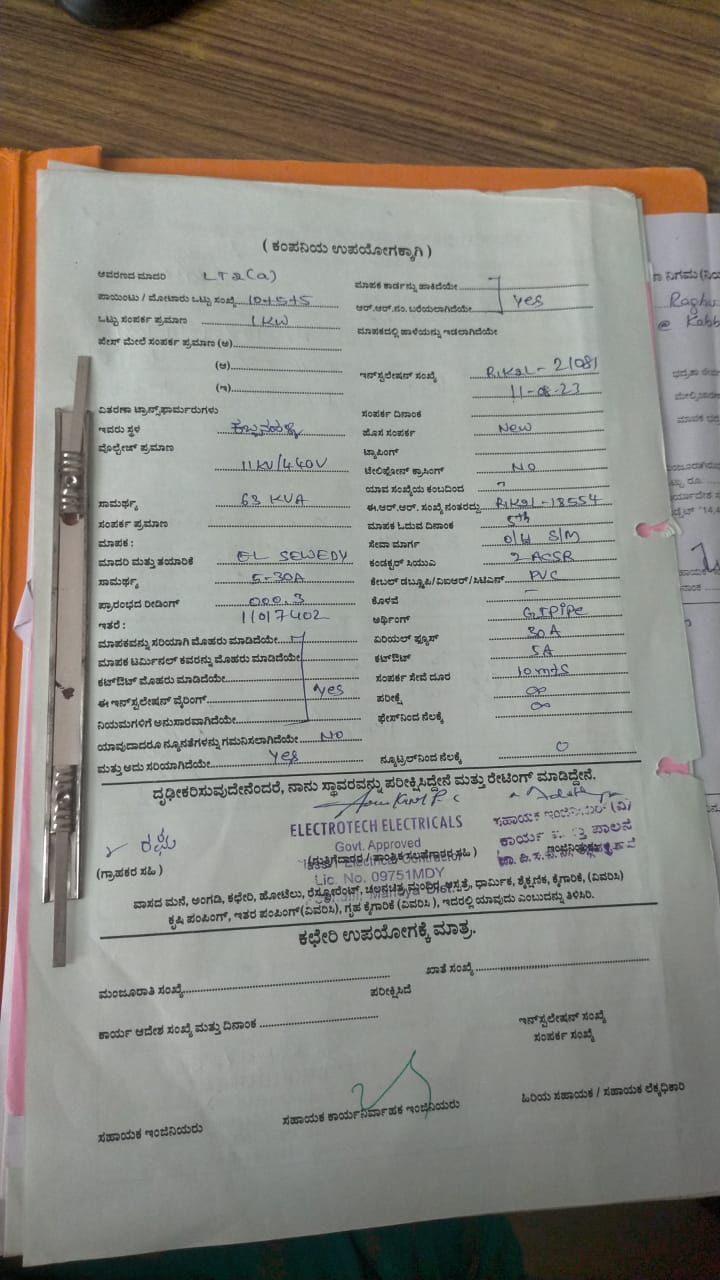 ( ಕಂಪನಿಯ ಉಪಯೋಗಕ್ಕಾಗಿ )
ಆವರಣದ ಮಾದರಿ LT2(a)
ಪಾಯಿಂಟು / ಮೋಟಾರು ಒಟ್ಟು ಸಂಖ್ಯೆ 10+5+5
ಒಟ್ಟು ಸಂಪರ್ಕ ಪ್ರಮಾಣ 1KW
ಪೇಸ್ ಮೇಲೆ ಸಂಪರ್ಕ ಪ್ರಮಾಣ (ಅ)
(ಆ)
(ಇ)
ವಿತರಣಾ ಟ್ರಾನ್ಸ್‌ಫಾರ್ಮರುಗಳು
ಇವರು ಸ್ಥಳ
ವೋಲ್ಟೇಜ್ ಪ್ರಮಾಣ
11KV/440V
ಸಾಮರ್ಥ್ಯ 63 KVA
ಸಂಪರ್ಕ ಪ್ರಮಾಣ
ಮಾಪಕ :
ಮಾದರಿ ಮತ್ತು ತಯಾರಿಕೆ EL SEWEDY
ಸಾಮರ್ಥ್ಯ 5-30A
ಪ್ರಾರಂಭದ ರೀಡಿಂಗ್ 000.3
ಇತರೆ : 11017402
ಮಾಪಕವನ್ನು ಸರಿಯಾಗಿ ಮೊಹರು ಮಾಡಿದೆಯೇ
ಮಾಪಕ ಟರ್ಮಿನಲ್ ಕವರನ್ನು ಮೊಹರು ಮಾಡಿದೆಯೇ
ಕಟ್‌ಔಟ್ ಮೊಹರು ಮಾಡಿದೆಯೇ
ಈ ಇನ್‌ಸ್ಟಲೇಷನ್ ವೈರಿಂಗ್ Yes
ನಿಯಮಗಳಿಗೆ ಅನುಸಾರವಾಗಿದೆಯೇ
ಯಾವುದಾದರೂ ನ್ಯೂನತೆಗಳನ್ನು ಗಮನಿಸಲಾಗಿದೆಯೇ NO
ಮತ್ತು ಅದು ಸರಿಯಾಗಿದೆಯೇ Yes
ಮಾಪಕ ಕಾರ್ಡನ್ನು ಹಾಕಿದೆಯೇ
ಆರ್.ಆರ್.ನಂ. ಬರೆಯಲಾಗಿದೆಯೇ Yes
ಮಾಪಕದಲ್ಲಿ ಹಾಳೆಯನ್ನು ಇಡಲಾಗಿದೆಯೇ
ಇನ್‌ಸ್ಟಲೇಷನ್ ಸಂಖ್ಯೆ RIK2L-21081
11-08-23
ಸಂಪರ್ಕ ದಿನಾಂಕ
ಹೊಸ ಸಂಪರ್ಕ New
ಟ್ಯಾಪಿಂಗ್
ಟೇಲಿಫೋನ್ ಕ್ರಾಸಿಂಗ್ NO
ಯಾವ ಸಂಖ್ಯೆಯ ಕಂಬದಿಂದ
ಈ.ಆರ್.ಆರ್. ಸಂಖ್ಯೆ ನಂತರದ್ದು RIK2L-18554
ಮಾಪಕ ಓದುವ ದಿನಾಂಕ 5th
ಸೇವಾ ಮಾರ್ಗ O/H S/M
ಕಂಡಕ್ಟರ್ ಸಿಯುಎ 2 ACSR
ಕೇಬರ್ ಡಬ್ಲ್ಯೂಪಿ/ವಿಐಆರ್/ಸಿಟಿಎಸ್ PVC
ಕೊಳವೆ -
ಅರ್ಥಿಂಗ್ GIPIPe
ಏರಿಯಲ್ ಫ್ಯೂಸ್ 30A
ಕಟ್‌ಔಟ್ 5A
ಸಂಪರ್ಕ ಸೇವೆ ದೂರ 10mts
ಪರೀಕ್ಷೆ ∞
ಫೇಸ್‌ನಿಂದ ನೆಲಕ್ಕೆ ∞
ನ್ಯೂಟ್ರಲ್‌ನಿಂದ ನೆಲಕ್ಕೆ 0
ದೃಢೀಕರಿಸುವುದೇನೆಂದರೆ, ನಾನು ಸ್ಥಾವರವನ್ನು ಪರೀಕ್ಷಿಸಿದ್ದೇನೆ ಮತ್ತು ರೇಟಿಂಗ್ ಮಾಡಿದ್ದೇನೆ.
ರಘು
(ಗ್ರಾಹಕರ ಸಹಿ)
ELECTROTECH ELECTRICALS
Govt. Approved
Lic No. 09751MDY
ಸಹಾಯಕ ಇಂಜಿನಿಯರ್ (ವಿ)
ವಾಸದ ಮನೆ, ಅಂಗಡಿ, ಕಛೇರಿ, ಹೋಟೆಲು, ರೆಸ್ಟೋರೆಂಟ್, ಚಲನಚಿತ್ರ ಮಂದಿರ, ಆಸ್ಪತ್ರೆ, ಧಾರ್ಮಿಕ, ಶೈಕ್ಷಣಿಕ, ಕೈಗಾರಿಕೆ, (ವಿವರಿಸಿ)
ಕೃಷಿ ಪಂಪಿಂಗ್, ಇತರ ಪಂಪಿಂಗ್(ವಿವರಿಸಿ), ಗೃಹ ಕೈಗಾರಿಕೆ (ವಿವರಿಸಿ), ಇದರಲ್ಲಿ ಯಾವುದು ಎಂಬುದನ್ನು ತಿಳಿಸಿರಿ.
ಕಛೇರಿ ಉಪಯೋಗಕ್ಕೆ ಮಾತ್ರ.
ಮಂಜೂರಾತಿ ಸಂಖ್ಯೆ ಪರೀಕ್ಷಿಸಿದೆ ಖಾತೆ ಸಂಖ್ಯೆ
ಕಾರ್ಯ ಆದೇಶ ಸಂಖ್ಯೆ ಮತ್ತು ದಿನಾಂಕ
ಇನ್‌ಸ್ಟಲೇಷನ್ ಸಂಖ್ಯೆ
ಸಂಪರ್ಕ ಸಂಖ್ಯೆ
ಸಹಾಯಕ ಇಂಜಿನಿಯರು ಸಹಾಯಕ ಕಾರ್ಯನಿರ್ವಾಹಕ ಇಂಜಿನಿಯರು ಹಿರಿಯ ಸಹಾಯಕ / ಸಹಾಯಕ ಲೆಕ್ಕಾಧಿಕಾರಿ